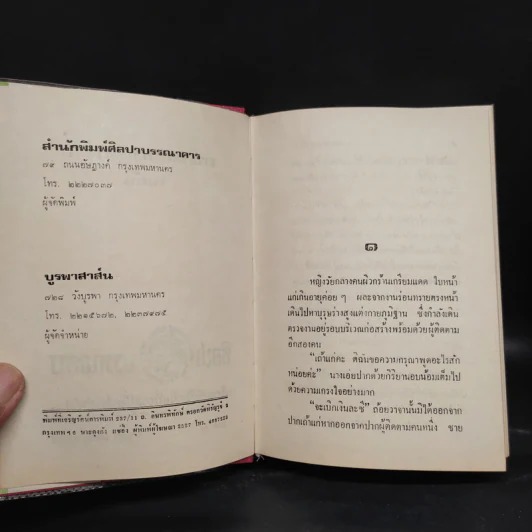 สำนักพิมพ์ศิลปาบรรณาคาร
๗๙ ถนนอัษฎางค์ กรุงเทพมหานคร
โทร. ๒๒๒๗๐๓๗
ผู้จัดพิมพ์
บูรพาสาส์น
๗๒๘ วังบูรพา กรุงเทพมหานคร
โทร. ๒๒๑๕๖๗๒, ๒๒๓๗๙๗๕
ผู้จัดจำหน่าย
กรุงเทพฯ โทร.
๑
หญิงวัยกลางคนผิวกร้านเกรียมแดด ใบหน้า
แก่เกินอายุค่อย ๆ ผละจากงานร่อนทรายตรงหน้า
เดินไปหาบุรุษร่างสูงแต่งกายภูมิฐาน ซึ่งกำลังเดิน
ตรวจงานอยู่รอบบริเวณก่อสร้างพร้อมด้วยผู้ติดตาม
อีกสองคน
"เถ้าแก่คะ ดิฉันขอความกรุณาพูดอะไรสัก
หน่อยค่ะ" นางเอ่ยปากด้วยกิริยานอบน้อมเต็มไป
ด้วยความเกรงใจอย่างมาก
"จะเบิกเงินละซี" ถ้อยวาจานั้นมิได้ออกจาก
ปากเถ้าแก่หากออกจากปากผู้ติดตามคนหนึ่ง ชาย